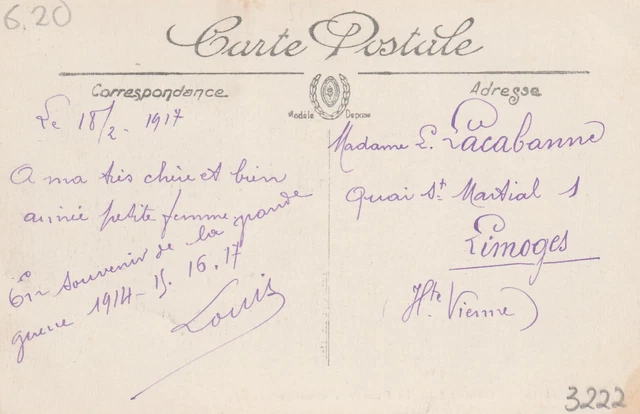 6.20
Carte Postale
Correspondance
Adresse
Modèle Déposé
Le 18/2 - 1917
A ma très chère et bien
aimée petite femme
En souvenir de la grande
guerre 1914-15. 16. 17
Louis
Madame L. Lacabanne
Quai St Martial 1
Limoges
(Hte Vienne)
3222